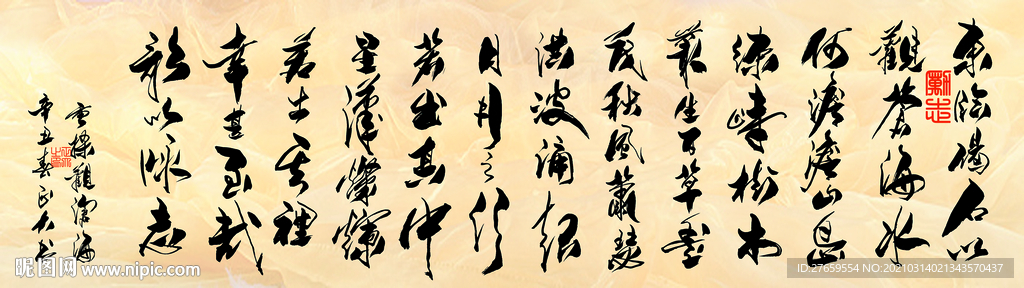 東臨碣石以
觀滄海水
何澹澹山島
竦峙樹木
叢生百草豐
茂秋風蕭瑟
洪波涌起
日月之行
若出其中
星漢燦爛
若出其裡
幸甚至哉
歌以詠志
曹操觀滄海
辛丑春
昵图网 www.nipic.com
ID:27659554 NO:20210314021343570437